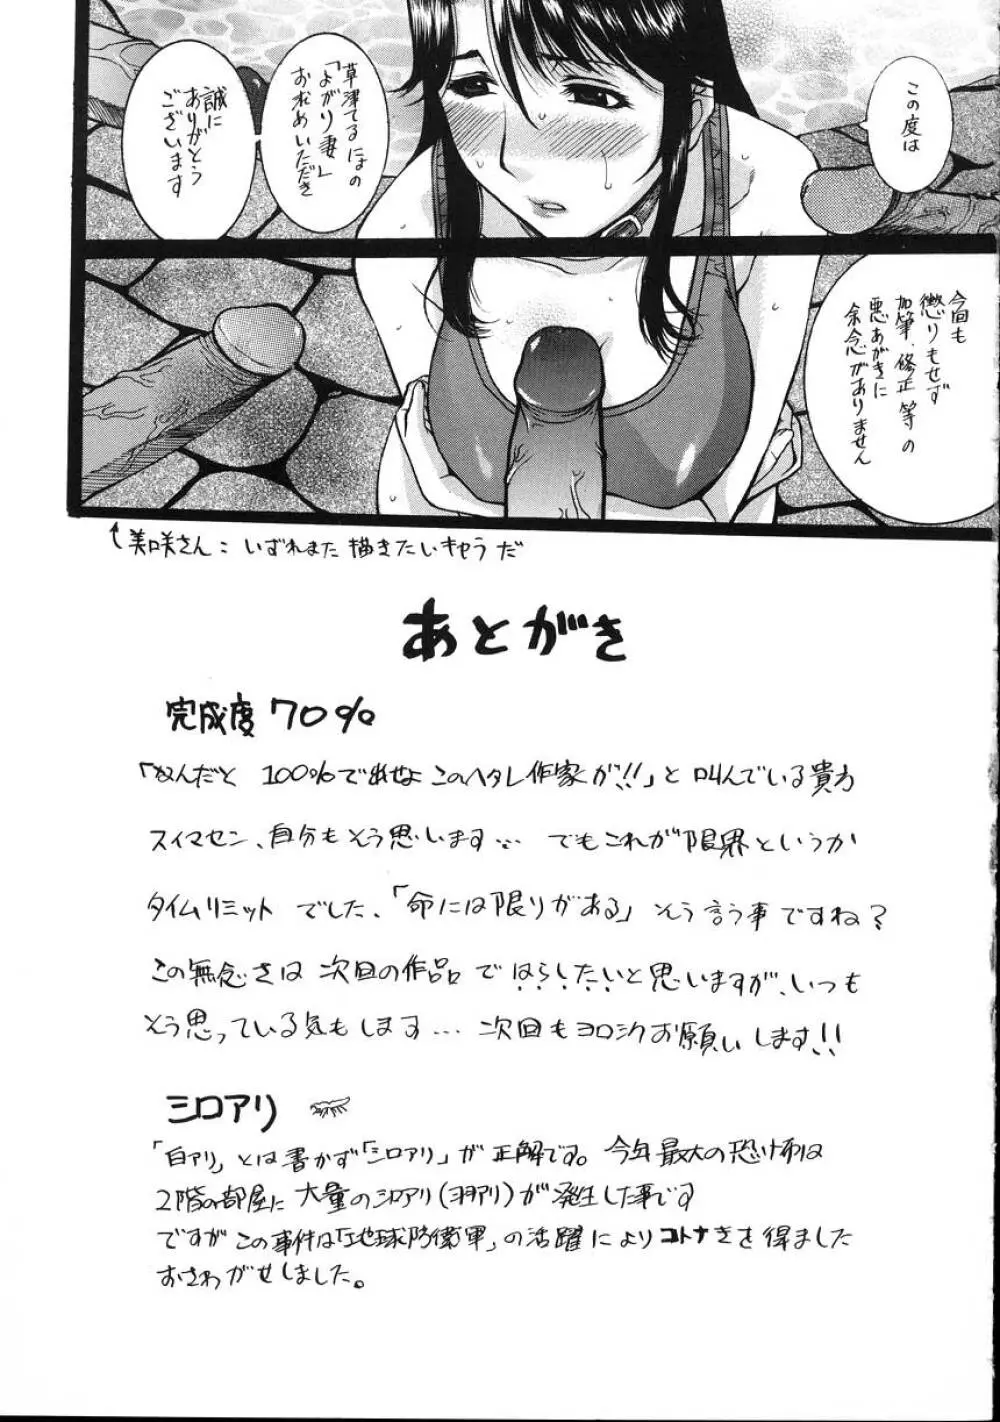 この度は
草津てるにはの
「よがり妻」
お求めいただき
誠に
ありがとう
ございます
今回も
懲りもせず
加筆、修正 等の
悪あがきに
余念がありません
美咲さん：いずれまた描きたいキャラだ
あとがき
完成度70％
「なんだと 100％で出せよこのヘタレ作家が!!」と叫んでいる貴方
スイマセン、自分もそう思います… でもこれが限界というか
タイムリミットでした、「命には限りがある」そう言う事ですね？
この無念さは次回の作品ではらしたいと思いますが、いつも
そう思っている気もします… 次回もヨロシクお願いします!!
シロアリ
「白アリ」とは書かず「シロアリ」が正解です。今年最大の恐怖は
2階の部屋に大量のシロアリ(ヨヲアリ)が発生した事です
ですがこの事件は「地球防衛軍」の活躍によりコトナきを得ました
おさわがせしました。